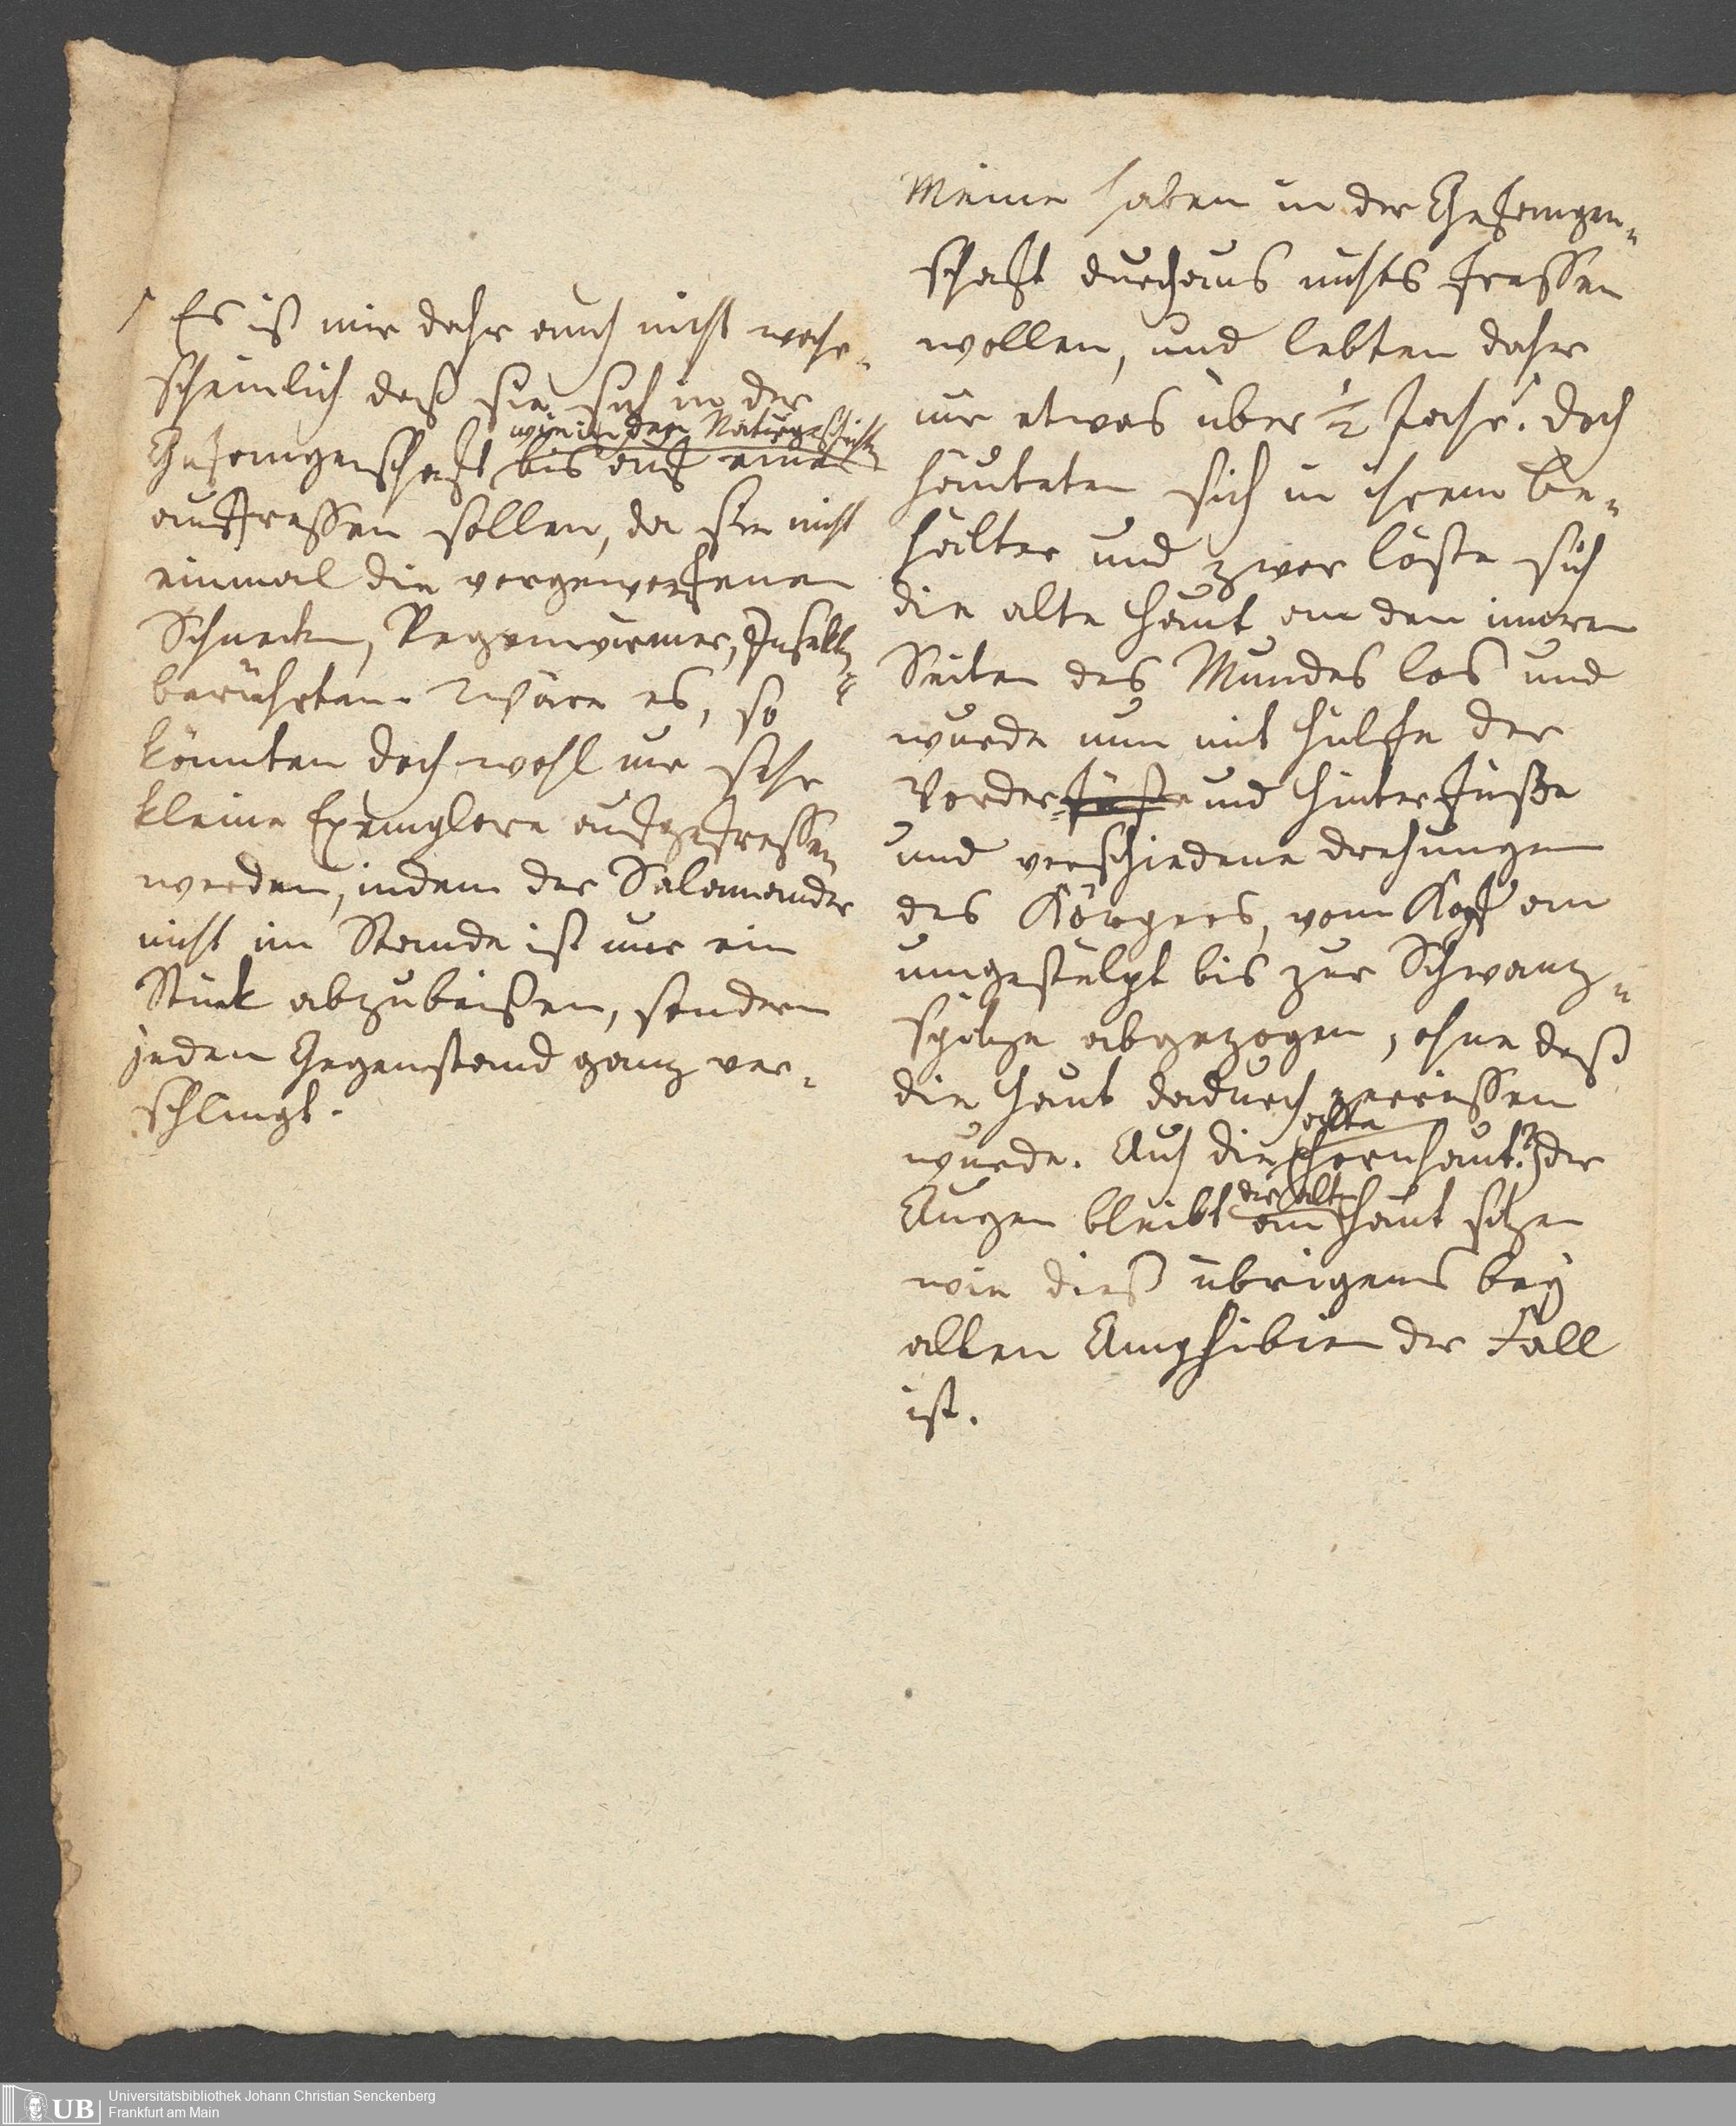 Meine haben in der Gefangen-
schaft durchaus nichts fressen
wollen, und lebten daher
nur etwas über ½ Jahr. Doch
häuteten sich in ihrem Be-
hälter und zwar löste sich
die alte Haut an den innern
Seiten des Mundes los und
wurde nun mit Hülfe der
Vorder-füße und Hinterfüße
und verschiedene Drehungen
des Körpers, vom Kopf an
umgestülpt bis zur Schwanz-
spitze abgezogen, ohne daß
die Haut dadurch zerrissen
alte
wurde. Auch die Hornhaut der
der alten
Augen bleibt an Haut sitzen
wie dieß übrigens bey
allen Amphibien der Fall
ist.
Es ist mir daher auch nicht wahr-
scheinlich daß sie sich in der
wie in den Naturgeschichten
Gefangenschaft bis auf eines
auffressen sollen, da sie nicht
einmal die vorgeworfenen
Schnecken, Regenwürmer, Insekten
berührten. Wäre es, so
könnten doch wohl nur sehr
kleine Exemplare aufgefressen
werden, indem der Salamander
nicht im Stande ist nur ein
Stück abzubeißen, sondern
jeden Gegenstand ganz ver-
schlingt.
UB
Universitätsbibliothek Johann Christian Senckenberg
Frankfurt am Main